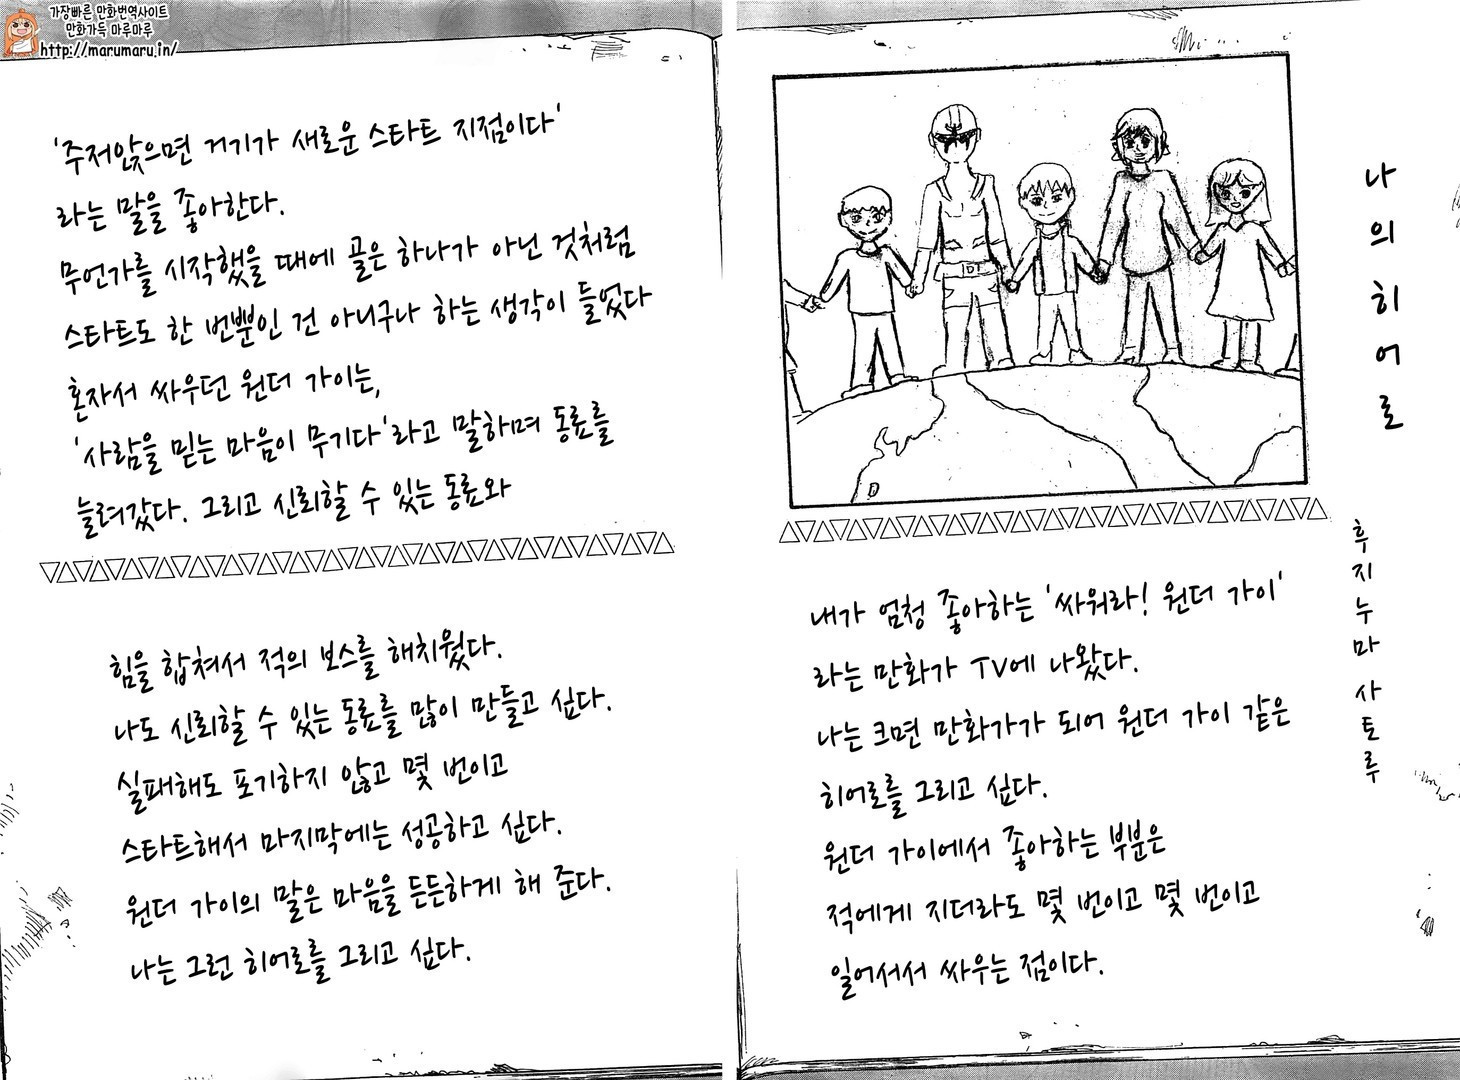 가장빠른 만화번역사이트
만화가득 마루마루
http://marumaru.in/
나의 히어로
후지누마 사토루
내가 엄청 좋아하는 '싸워라! 원더 가이'
라는 만화가 TV에 나왔다.
나는 크면 만화가가 되어 원더 가이 같은
히어로를 그리고 싶다.
원더 가이에서 좋아하는 부분은
적에게 지더라도 몇 번이고 몇 번이고
일어서서 싸우는 점이다.
'주저앉으면 거기가 새로운 스타트 지점이다'
라는 말을 좋아한다.
무언가를 시작했을 때에 골은 하나가 아닌 것처럼
스타트도 한 번뿐인 건 아니구나 하는 생각이 들었다
혼자서 싸우던 원더 가이는,
'사람을 믿는 마음이 무기다'라고 말하며 동료를
늘려갔다. 그리고 신뢰할 수 있는 동료와
힘을 합쳐서 적의 보스를 해치웠다.
나도 신뢰할 수 있는 동료를 많이 만들고 싶다.
실패해도 포기하지 않고 몇 번이고
스타트해서 마지막에는 성공하고 싶다.
원더 가이의 말은 마음을 든든하게 해 준다.
나는 그런 히어로를 그리고 싶다.